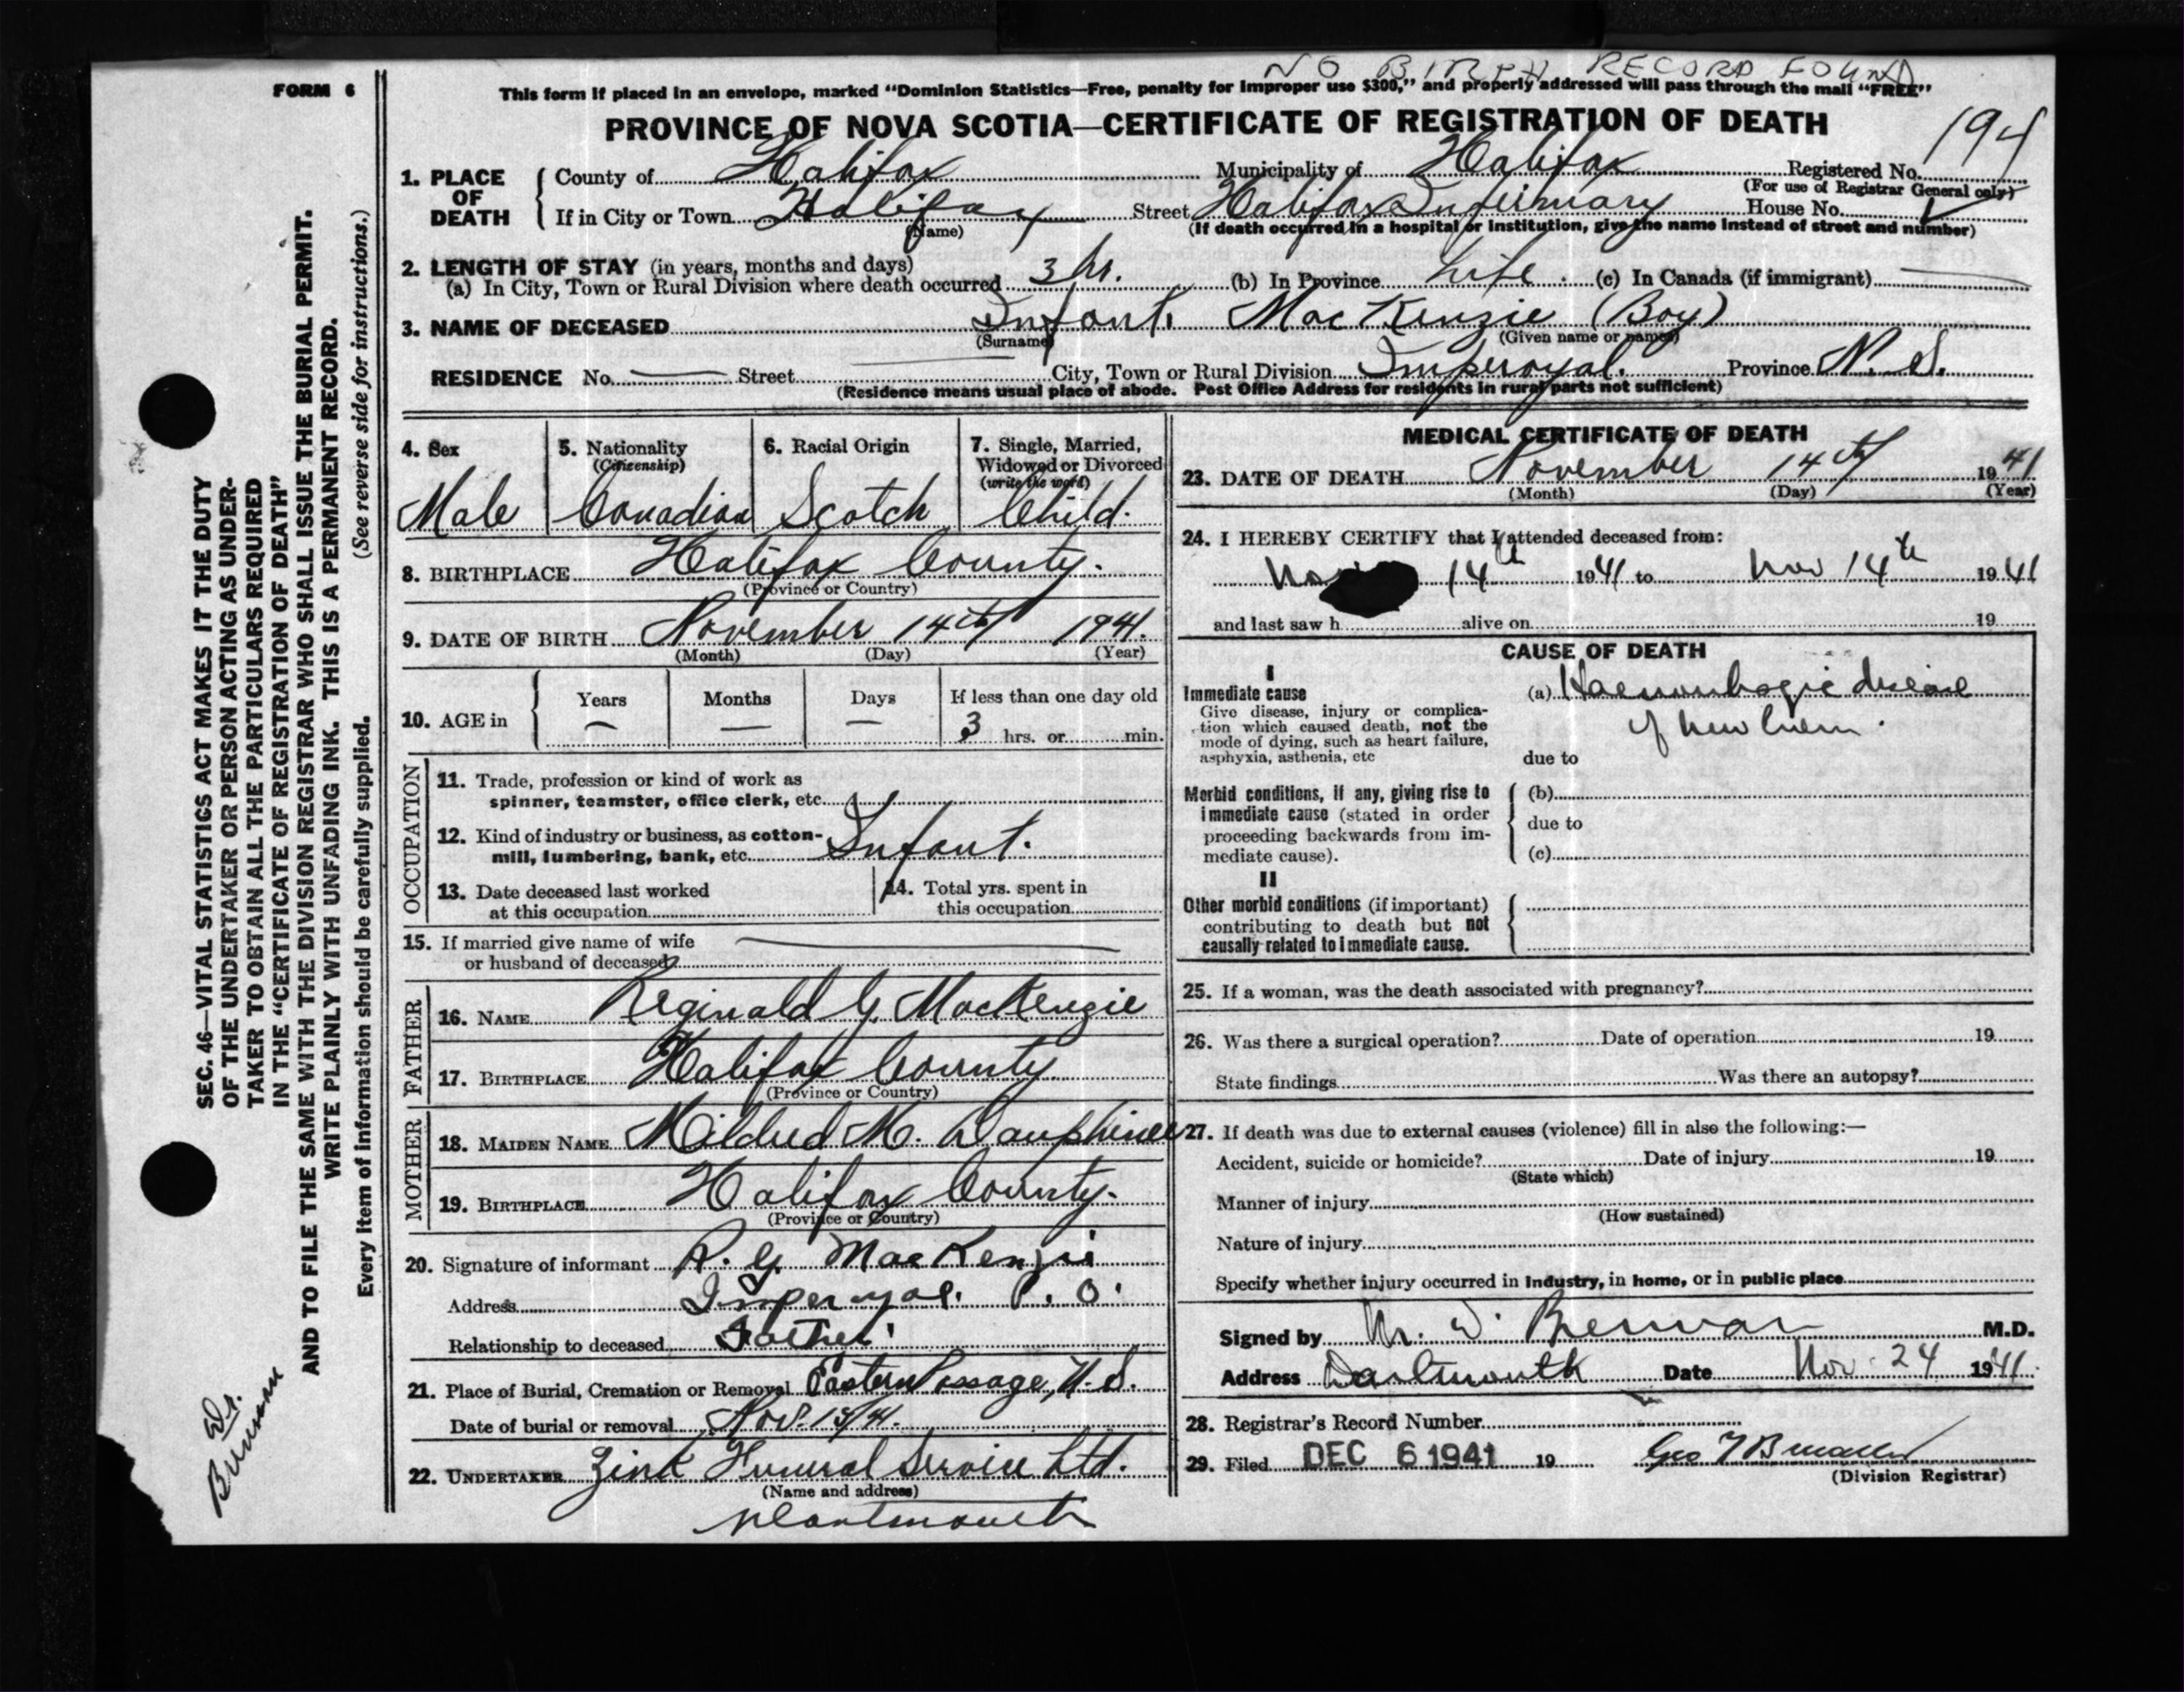 NO BIRTH RECORD FOUND
FORM 6
This form if placed in an envelope, marked "Dominion Statistics—Free, penalty for improper use $300," and properly addressed will pass through the mail "FREE"
PROVINCE OF NOVA SCOTIA—CERTIFICATE OF REGISTRATION OF DEATH
194
1. PLACE OF DEATH
County of Halifax Municipality of Halifax Registered No.
(For use of Registrar General only)
If in City or Town Halifax Street Halifax Infirmary House No.
(Name) (If death occurred in a hospital or institution, give the name instead of street and number)
2. LENGTH OF STAY (in years, months and days)
(a) In City, Town or Rural Division where death occurred 3 hr. (b) In Province Life. (c) In Canada (if immigrant)
3. NAME OF DECEASED Infant MacKenzie (Boy)
(Surname) (Given name or names)
RESIDENCE No. Street City, Town or Rural Division Imperoyal. Province N.S.
(Residence means usual place of abode. Post Office Address for residents in rural parts not sufficient)
4. Sex
Male
5. Nationality
(Citizenship)
Canadian
6. Racial Origin
Scotch
7. Single, Married,
Widowed or Divorced
(write the word)
Child.
8. BIRTHPLACE Halifax County.
(Province or Country)
9. DATE OF BIRTH November 14th 1941.
(Month) (Day) (Year)
10. AGE in
Years Months Days If less than one day old
— — — 3 hrs. or min.
OCCUPATION
11. Trade, profession or kind of work as
spinner, teamster, office clerk, etc.
12. Kind of industry or business, as cotton-
mill, lumbering, bank, etc. Infant.
13. Date deceased last worked
at this occupation
14. Total yrs. spent in
this occupation
15. If married give name of wife
or husband of deceased
FATHER
16. NAME Reginald G. MacKenzie
17. BIRTHPLACE Halifax County
(Province or Country)
MOTHER
18. MAIDEN NAME Mildred M. Dauphinee
19. BIRTHPLACE Halifax County.
(Province or Country)
20. Signature of informant R. G. MacKenzie
Address Imperoyal. P.O.
Relationship to deceased Father
21. Place of Burial, Cremation or Removal Eastern Passage, N.S.
Date of burial or removal Nov. 15/41.
22. UNDERTAKER Zink Funeral Service Ltd.
(Name and address)
Dartmouth
MEDICAL CERTIFICATE OF DEATH
23. DATE OF DEATH November 14th 1941
(Month) (Day) (Year)
24. I HEREBY CERTIFY that I attended deceased from:
Nov 14th 1941 to Nov 14th 1941
and last saw h alive on 19
CAUSE OF DEATH
I
Immediate cause
Give disease, injury or complica-
tion which caused death, not the
mode of dying, such as heart failure,
asphyxia, asthenia, etc
(a) Haemorrhagic disease
of new born.
due to
Morbid conditions, if any, giving rise to
immediate cause (stated in order
proceeding backwards from im-
mediate cause).
(b)
due to
(c)
II
Other morbid conditions (if important)
contributing to death but not
causally related to immediate cause.
25. If a woman, was the death associated with pregnancy?
26. Was there a surgical operation? Date of operation 19
State findings Was there an autopsy?
27. If death was due to external causes (violence) fill in also the following:—
Accident, suicide or homicide? Date of injury 19
(State which)
Manner of injury
(How sustained)
Nature of injury
Specify whether injury occurred in industry, in home, or in public place
Signed by W. Brennan M.D.
Address Dartmouth Date Nov. 24 1941.
28. Registrar's Record Number
29. Filed DEC 6 1941 19
(Division Registrar)
SEC. 46—VITAL STATISTICS ACT MAKES IT THE DUTY
OF THE UNDERTAKER OR PERSON ACTING AS UNDER-
TAKER TO OBTAIN ALL THE PARTICULARS REQUIRED
IN THE "CERTIFICATE OF REGISTRATION OF DEATH"
AND TO FILE THE SAME WITH THE DIVISION REGISTRAR WHO SHALL ISSUE THE BURIAL PERMIT.
WRITE PLAINLY WITH UNFADING INK. THIS IS A PERMANENT RECORD.
Every item of information should be carefully supplied. (See reverse side for instructions.)
Dr.
Brennan